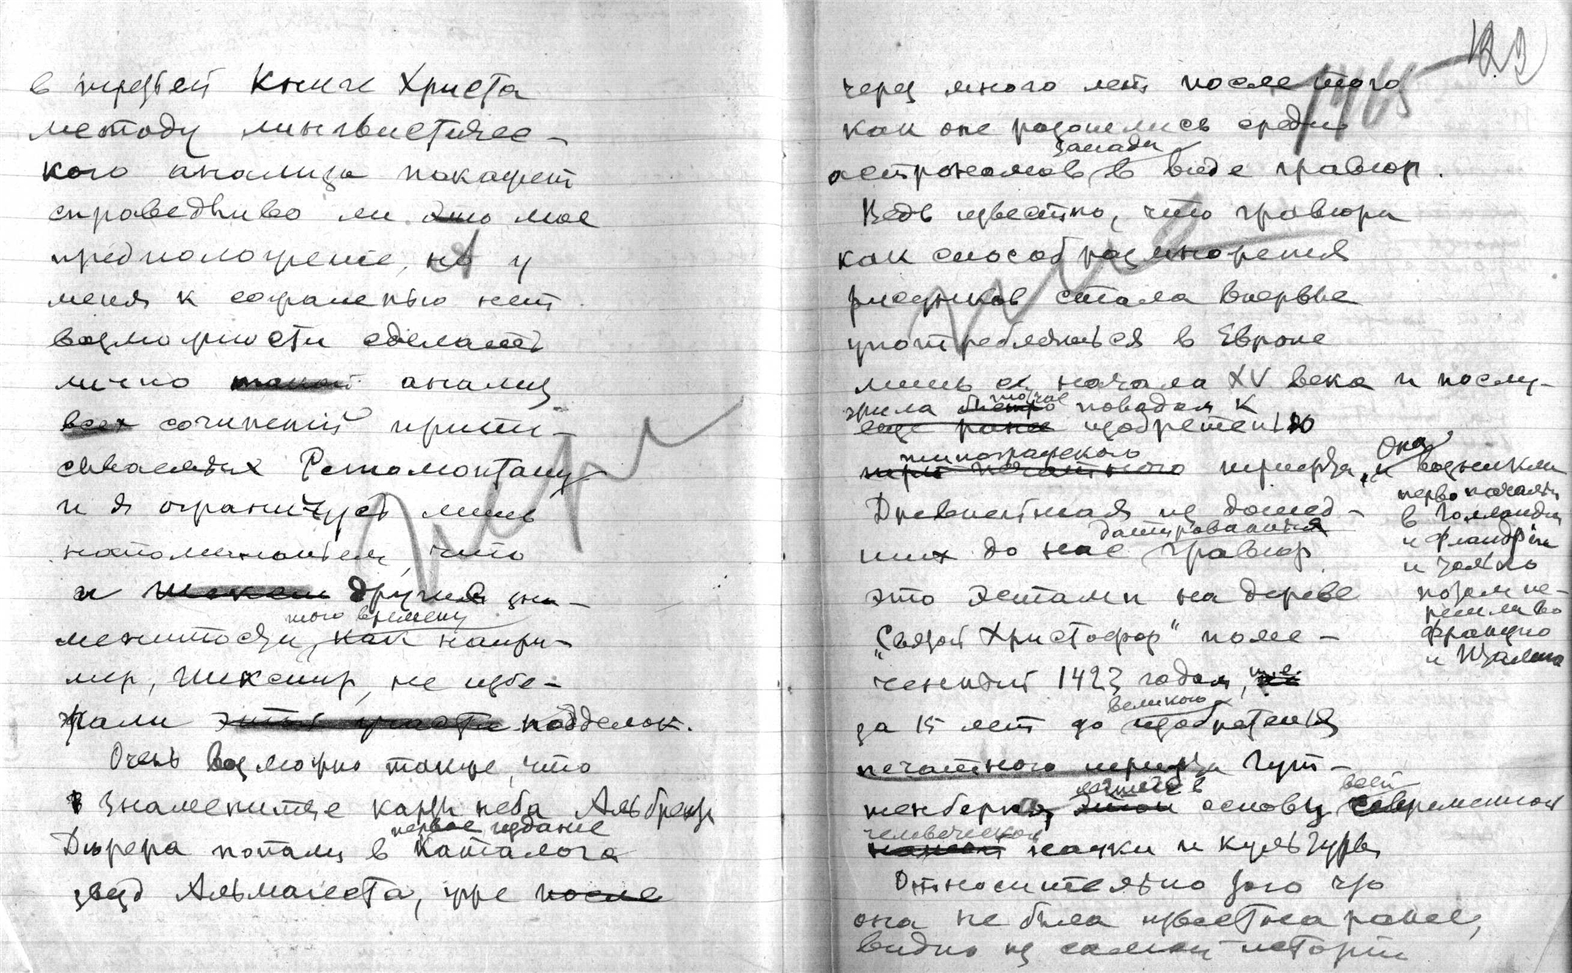 в третьей книге Христа
методу лингвистичес-
кого анализа покажет
справедливо ли это мое
предположение, но у
меня к сожаленью нет
возможности сделать
лично такой анализ
всех сочинений припи-
сываемых Региомонтану
и я ограничусь лишь
напоминанием, что
и другие зна-
того времени
менитости, как напри-
мер, Шекспир, не избе-
жали подделок.
Очень возможно также, что
знаменитые карты неба Альбрехта
первое издание
Дюрера попали в Каталога
звезд Альмагеста, уже после
122
1465
через много лет после того
как они разошлись среди
запада
астрономов в виде гравюр.
Ведь известно, что гравюра
как способ размножения
рисунков стала впервые
употребляться в Европе
лишь с начала XV века и послу-
жила поводом к
еще ранее изобретению
типографского
печатного шрифта. Она возникли
первоначально
в Голландии
и Фландрии
и только
потом пе-
решла во
Францию
и Италию
Древнейшая из дошед-
датированная
ших до нас гравюр
это эстамп на дереве
"Святой Христофор" поме-
ченный 1423 годом, т.е.
великого
за 15 лет до изобретения
печатного шрифта Гут-
тенберга, в основу всей современной
человеческой
науки и культуры
Относительно того что
она не была известна ранее,
видно из самой истории